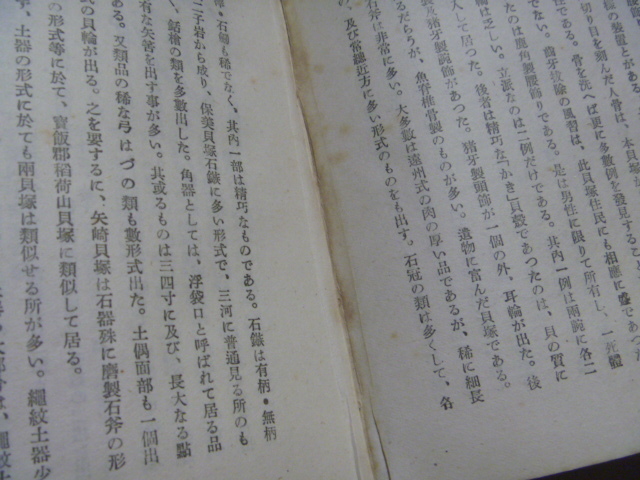 輪の装着
切り目を刻んだ人骨は、本貝塚
ある。骨を洗へば更に多数例を発見すると
でない。齒牙拔除の風習は、此貝塚住民にも相應に盛であつた
たのは鹿角製腰飾りである。是は男性に限りて所有し、一死體
に乏しい。立派なのは二例だけである。其内一例は兩腕に各二
入して居つた。後者は精巧な「かき」貝殼であつたのは、貝の質に
製猪牙製腕飾があつた。猪牙製頭飾が一個の外、耳輪が出た。後
るだらうが、魚脊椎骨製のものが多い。遺物に富んだ貝塚である。
石斧は非常に多い。大多數は遠州式の肉の厚い品であるが、稀に細長
の、及び常總近方に多い形式のものをも出す。石冠の類は多くして、各
棒・石錘も稀でなく、其内一部は精巧なものである。石鏃は有柄・無柄
二子岩から成り、保美貝塚石鏃に多い形式で、三河に普通見る所のも
く、鋸槍の類を多數出した。角器としては、浮袋口と呼ばれて居る品
有な矢筈を出す事が多い。共或るものは三四寸に及び、長大なる點
ある。又類品の稀な弓はづの類も數形式出た。土偶面部も一個出
の貝輪が出る。之を要するに、矢崎貝塚は石器殊に磨製石斧の形
の形式等に於て、寶飯郡稻荷山貝塚に類似して居る。
、土器の形式に於ても兩貝塚は類似せる所が多い。繩紋土器少